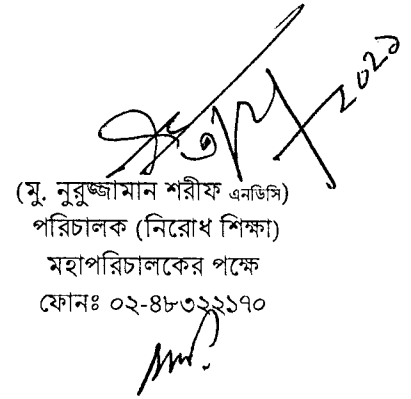 ২০২১
(মু. নুরুজ্জামান শরীফ এনডিসি)
পরিচালক (নিরোধ শিক্ষা)
মহাপরিচালকের পক্ষে
ফোনঃ ০২-৪৮৩২২১৭০